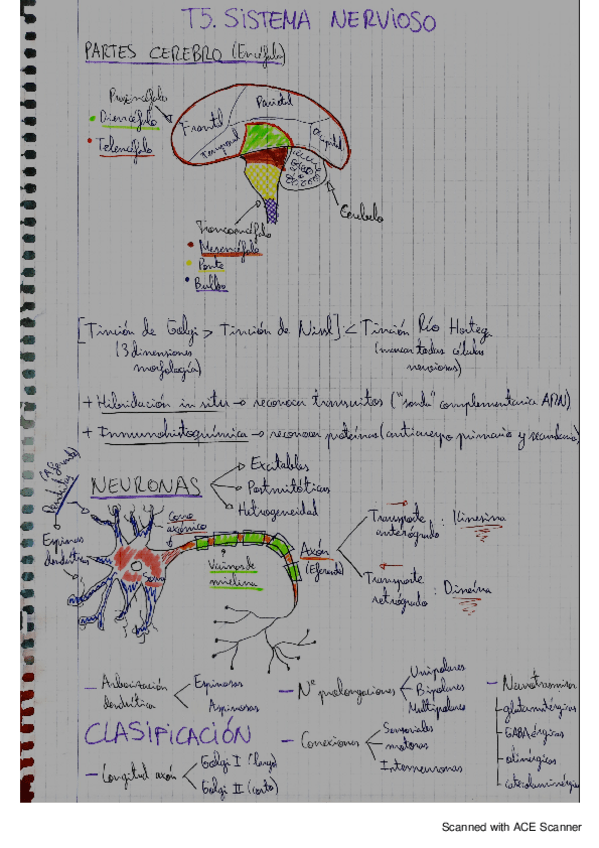 T5. SISTEMA NERVIOSO
PARTES CEREBRO (Encéfalo)
Prosencéfalo
• Diencéfalo
• Telencéfalo
Frontal
Parietal
Temporal
Occipital
Cerebelo
Troncoencéfalo
• Mesencéfalo
• Ponte
• Bulbo
[Tinción de Golgi > Tinción de Nissl] < Tinción Río Hortega
(3 dimensiones morfología)
(marcan todas células nerviosas)
+ Hibridación in situ → reconocer transcritos ("sonda" complementaria ARN)
+ Inmunohistoquímica → reconocer proteínas (anticuerpo primario y secundario)
NEURONAS
Excitables
Postmitóticas
Heterogeneidad
Dendritas
(Aferente)
Espinas dendríticas
Soma
Cono axónico
Vainas de mielina
Axón
(Eferente)
Transporte anterógrado : Kinesina
Transporte retrógrado : Dineína
CLASIFICACIÓN
– Arborización dendrítica
Espinosas
Aspinosas
– Longitud axón
Golgi I (largo)
Golgi II (corto)
– Nº prolongaciones
Unipolares
Bipolares
Multipolares
– Conexiones
Sensoriales
motoras
Interneuronas
– Neurotransmisor
glutamatérgicas
GABAérgicas
colinérgicas
catecolaminérgicas
Scanned with ACE Scanner